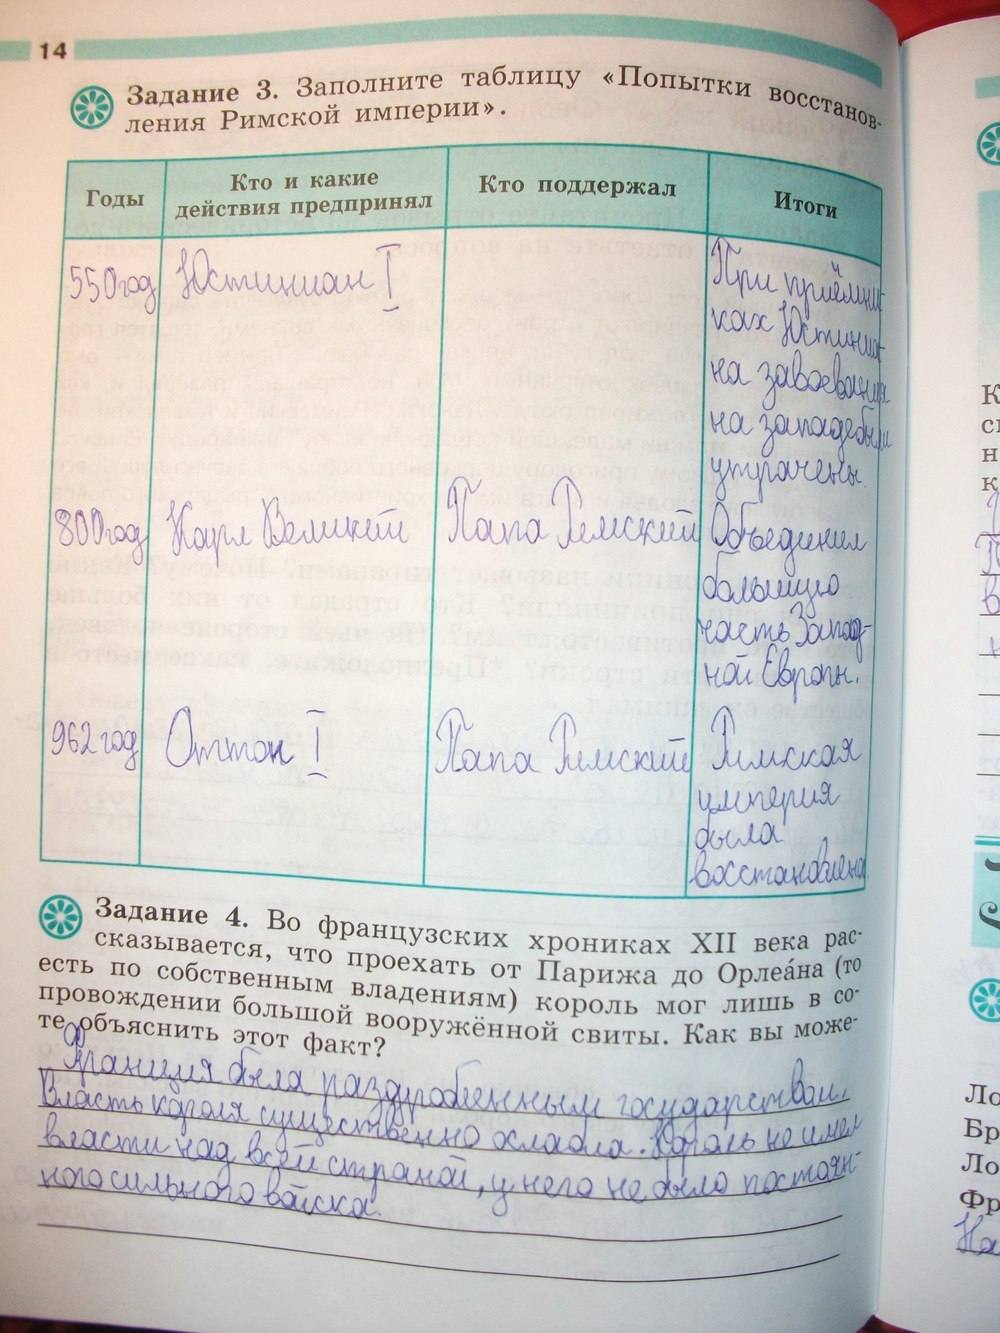 14
Задание 3. Заполните таблицу «Попытки восстанов-
ления Римской империи».
Годы
Кто и какие
действия предпринял
Кто поддержал
Итоги
550 год
Юстиниан I
При приёмни-
ках Юстиниа-
на завоевания
на западе были
утрачены.
800 год
Карл Великий
Папа Римский
Объединил
большую
часть Запад-
ной Европы.
962 год
Оттон I
Папа Римский
Римская
империя
была
восстановлена
Задание 4. Во французских хрониках XII века рас-
сказывается, что проехать от Парижа до Орлеа́на (то
есть по собственным владениям) король мог лишь в со-
провождении большой вооружённой свиты. Как вы може-
те объяснить этот факт?
Франция была раздробленным государством.
Власть короля существенно ослабла. Король не имел
власти над всей страной, у него не было постоян-
ного сильного войска.
К
с
н
к
Ло
Бр
Ло
Фр
На